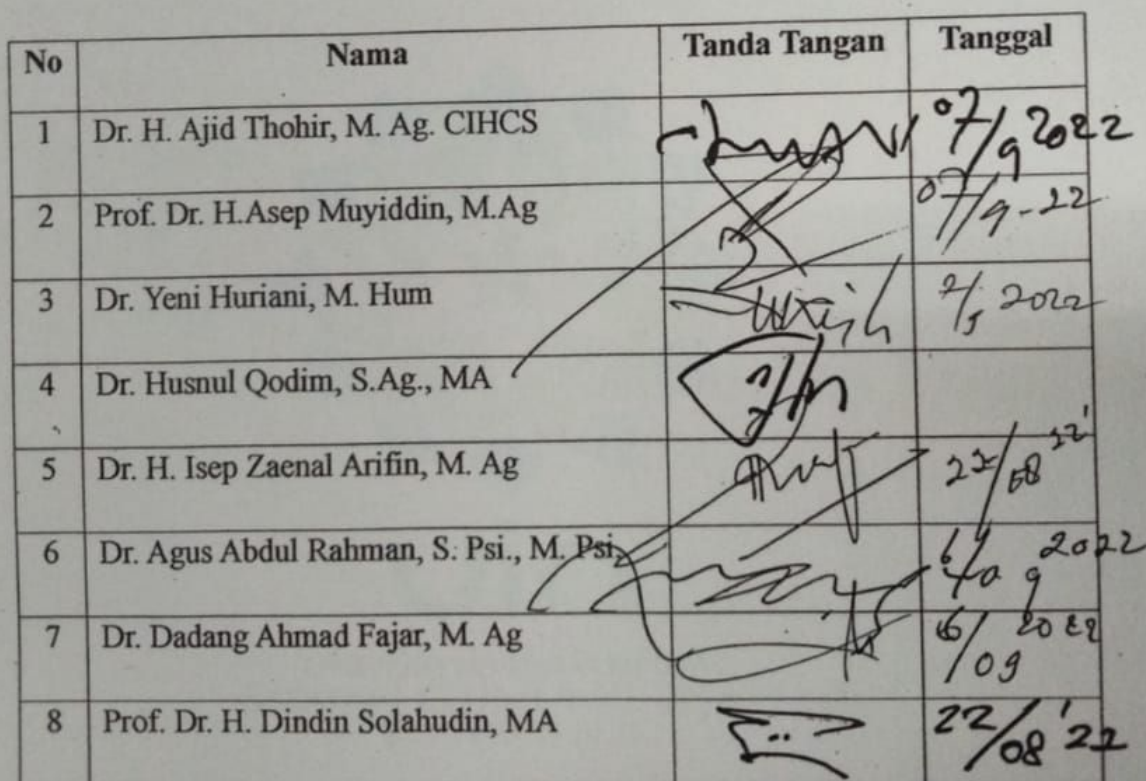 No Nama Tanda Tangan Tanggal
1 Dr. H. Ajid Thohir, M. Ag. CIHCS 07/9 2022
2 Prof. Dr. H.Asep Muyiddin, M.Ag 07/9-22
3 Dr. Yeni Huriani, M. Hum 2022
4 Dr. Husnul Qodim, S.Ag., MA
5 Dr. H. Isep Zaenal Arifin, M. Ag 22/08
6 Dr. Agus Abdul Rahman, S. Psi., M. Psi 2022
7 Dr. Dadang Ahmad Fajar, M. Ag 6/09 2022
8 Prof. Dr. H. Dindin Solahudin, MA 22/08 '22